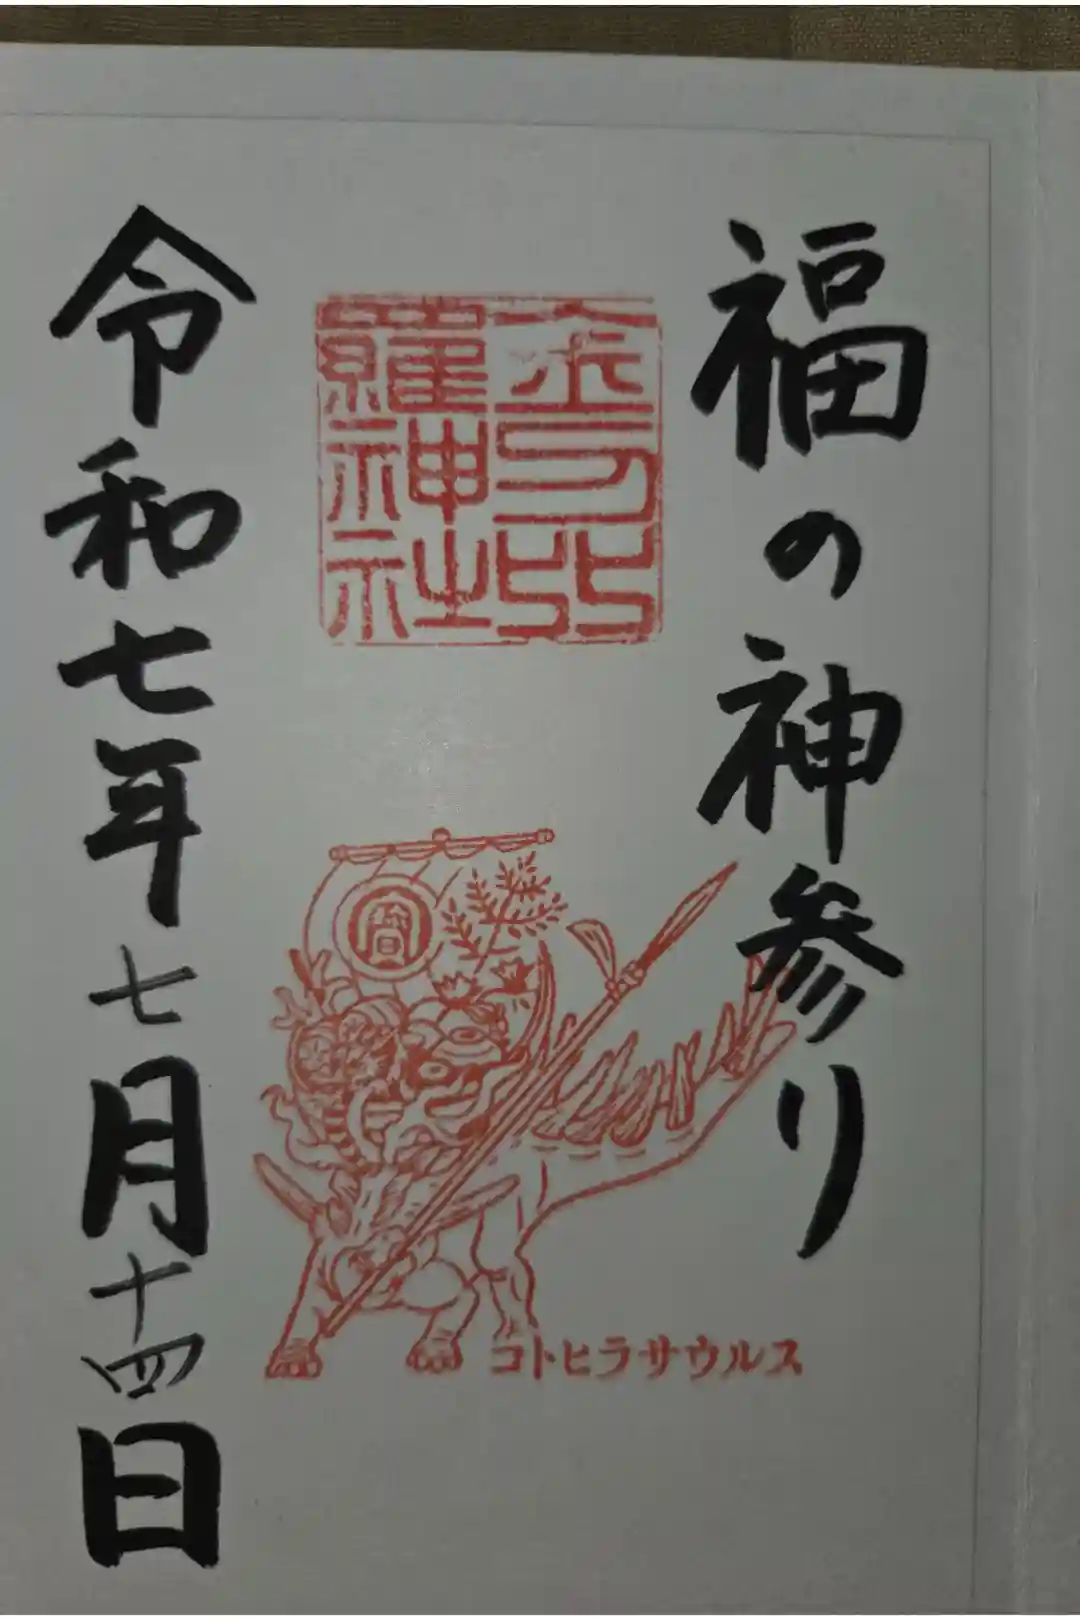 福の神参り
金刀比羅神社
金
コトヒラサウルス
令和七年七月十四日